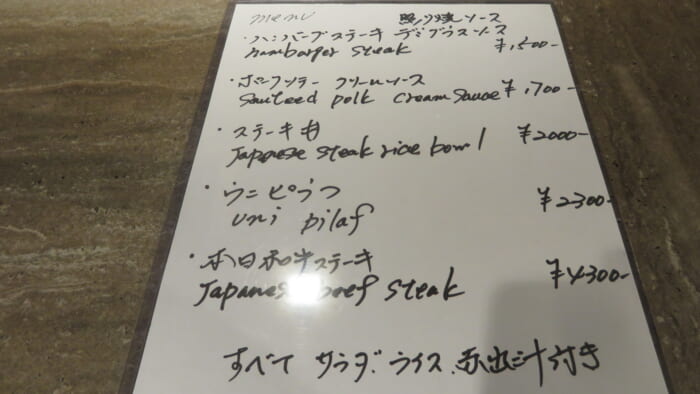 menu 照り焼ソース
・ハンバーグステーキ デミグラスソース
hamburger steak ¥1,500-
・ポークソテー クリームソース
Sauteed polk cream sauce ¥1,700-
・ステーキ丼
Japanese steak rice bowl ¥2000-
・ウニピラフ
uni pilaf ¥2300-
・和牛ステーキ
Japanese beef steak ¥4300-
すべて サラダ、ライス、赤出汁付き